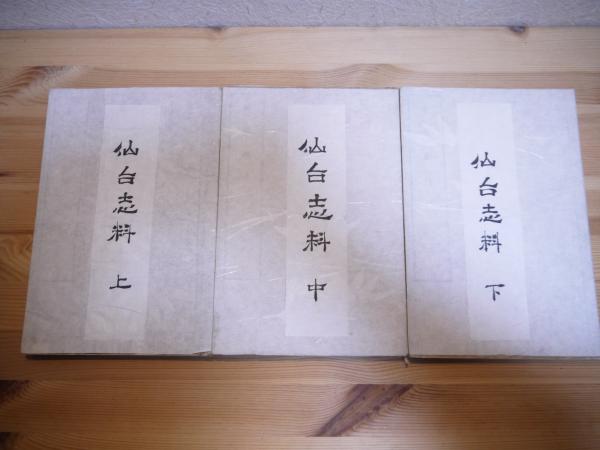 仙台志料 上
仙台志料 中
仙台志料 下